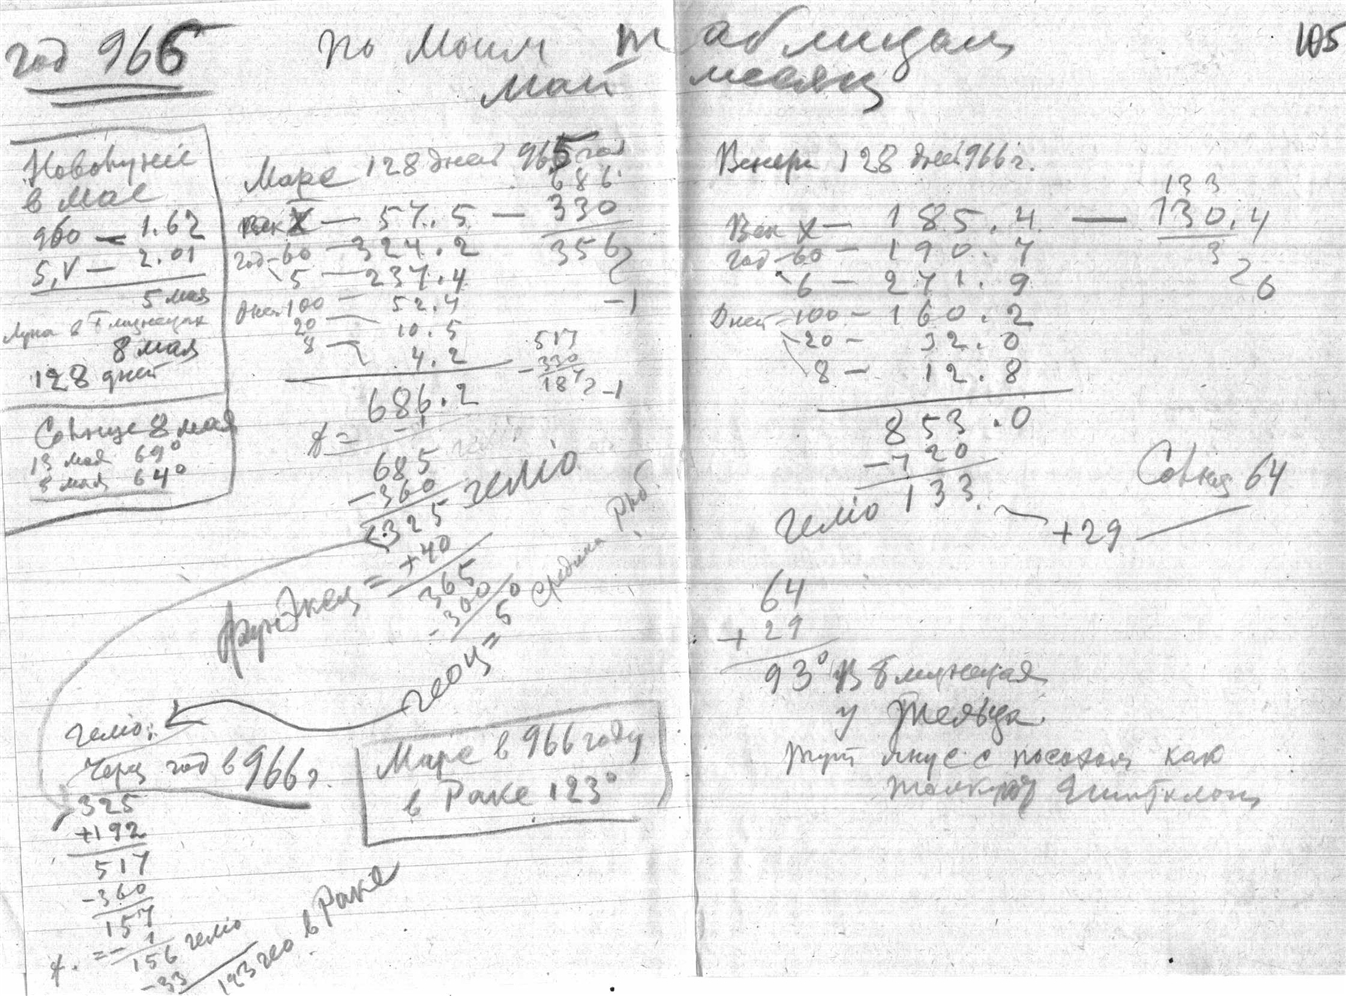 год 966
по моим таблицам
май месяц
105
Новолуние
в мае
960 — 1.62
5, V — 2.01
5 мая
Луна в Близнецах
8 мая
128 дней
Солнце 8 мая
13 мая 69°
8 мая 64°
Марс 128 дней 965 год
век X — 57.5 — 330
686
330
356
год — 60 — 324.2
5 — 237.4
Дней 100 — 52.4
20 — 10.5
8 — 4.2
686.2
-1
685
-360
325 гелio
+40
365
-360
5
средина Рыб
-1
517
-330
187
-1
геоц =
гелio:
Через год в 966 г.
325
+192
517
-360
157
- 1
156 гелio
-33
123 гео в Раке
Марс в 966 году
в Раке 123°
Венера 128 дней 966 г.
133
Век X — 185.4 — 130.4
3
26
год — 60 — 190.7
6 — 271.9
Дней — 100 — 160.2
20 — 32.0
8 — 12.8
853.0
-720
гелio 133
+29
Солнце 64
64
+ 29
93° В Близнецах
у Тельца
Тут Янус с посохом как